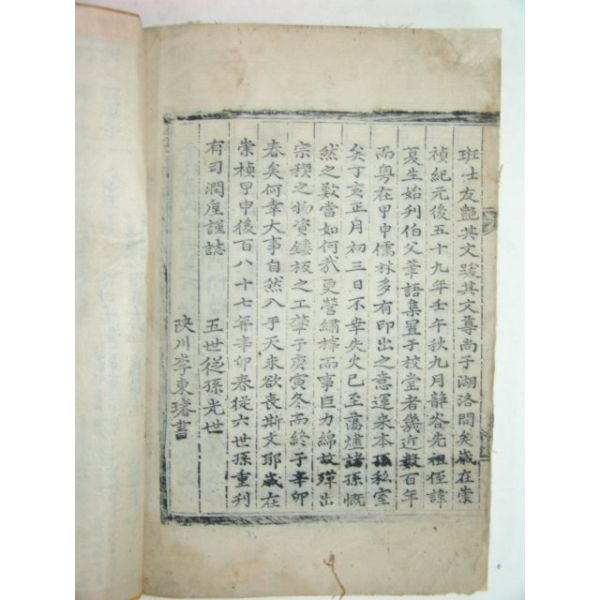 班士友艶其文跋其文尊尚于湖洛間矣歲在崇
禎紀元後五十九年壬午秋九月辭谷先祖侄諱
夏生始刋伯父筆語集置于校堂者幾近數百年
而粤在甲申儒林多有印出之意運來本孫私室
矣丁亥正月初三日不幸失火已至蕩爐諸孫慨
然之歎當如何哉更營繡梓而事巨力綿故殫出
宗稧之物資鋟板之工肇于庚寅冬而終于辛卯
春矣何幸大事自然入乎天未欲丧斯文耶歲在
崇楨甲申後百八十七年辛卯春從六世孫重刋
有司潤屋謹誌
五世從孫光世
陜川李東璿書